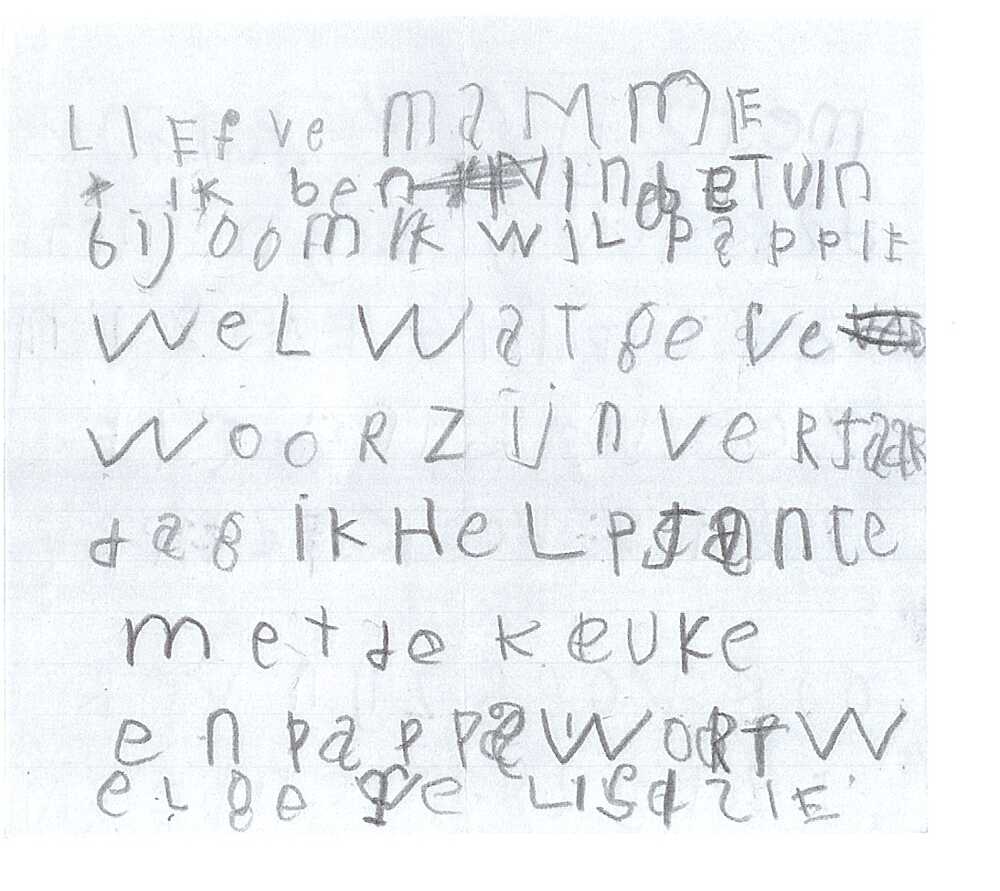 LIEfve maMMIE
ik ben in de TUin
bij oom ik wiL pappIE
weL waT geve
wooR zijn veRjaaR
dag ik HeLp tante
met de keuke
en pappa woRt w
eL geve LISdzIE